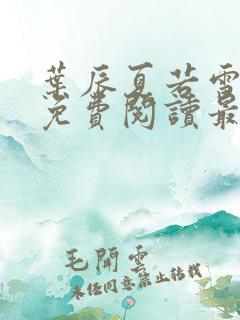 葉辰夏若雪
免費閱讀最
毛開雲
未經同意禁止轉載